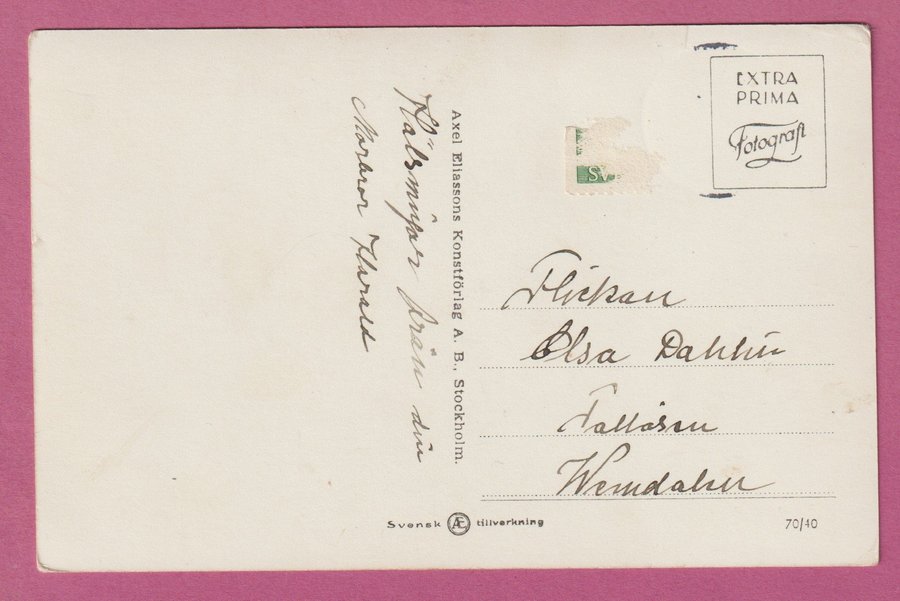 Hälsningar från din
Morbror Harald
Axel Eliassons Konstförlag A. B., Stockholm.
EXTRA
PRIMA
Fotografi
SV
Flickan
Elsa Dahlin
Fallåsen
Wemdalen
Svensk Æ tillverkning
70/40